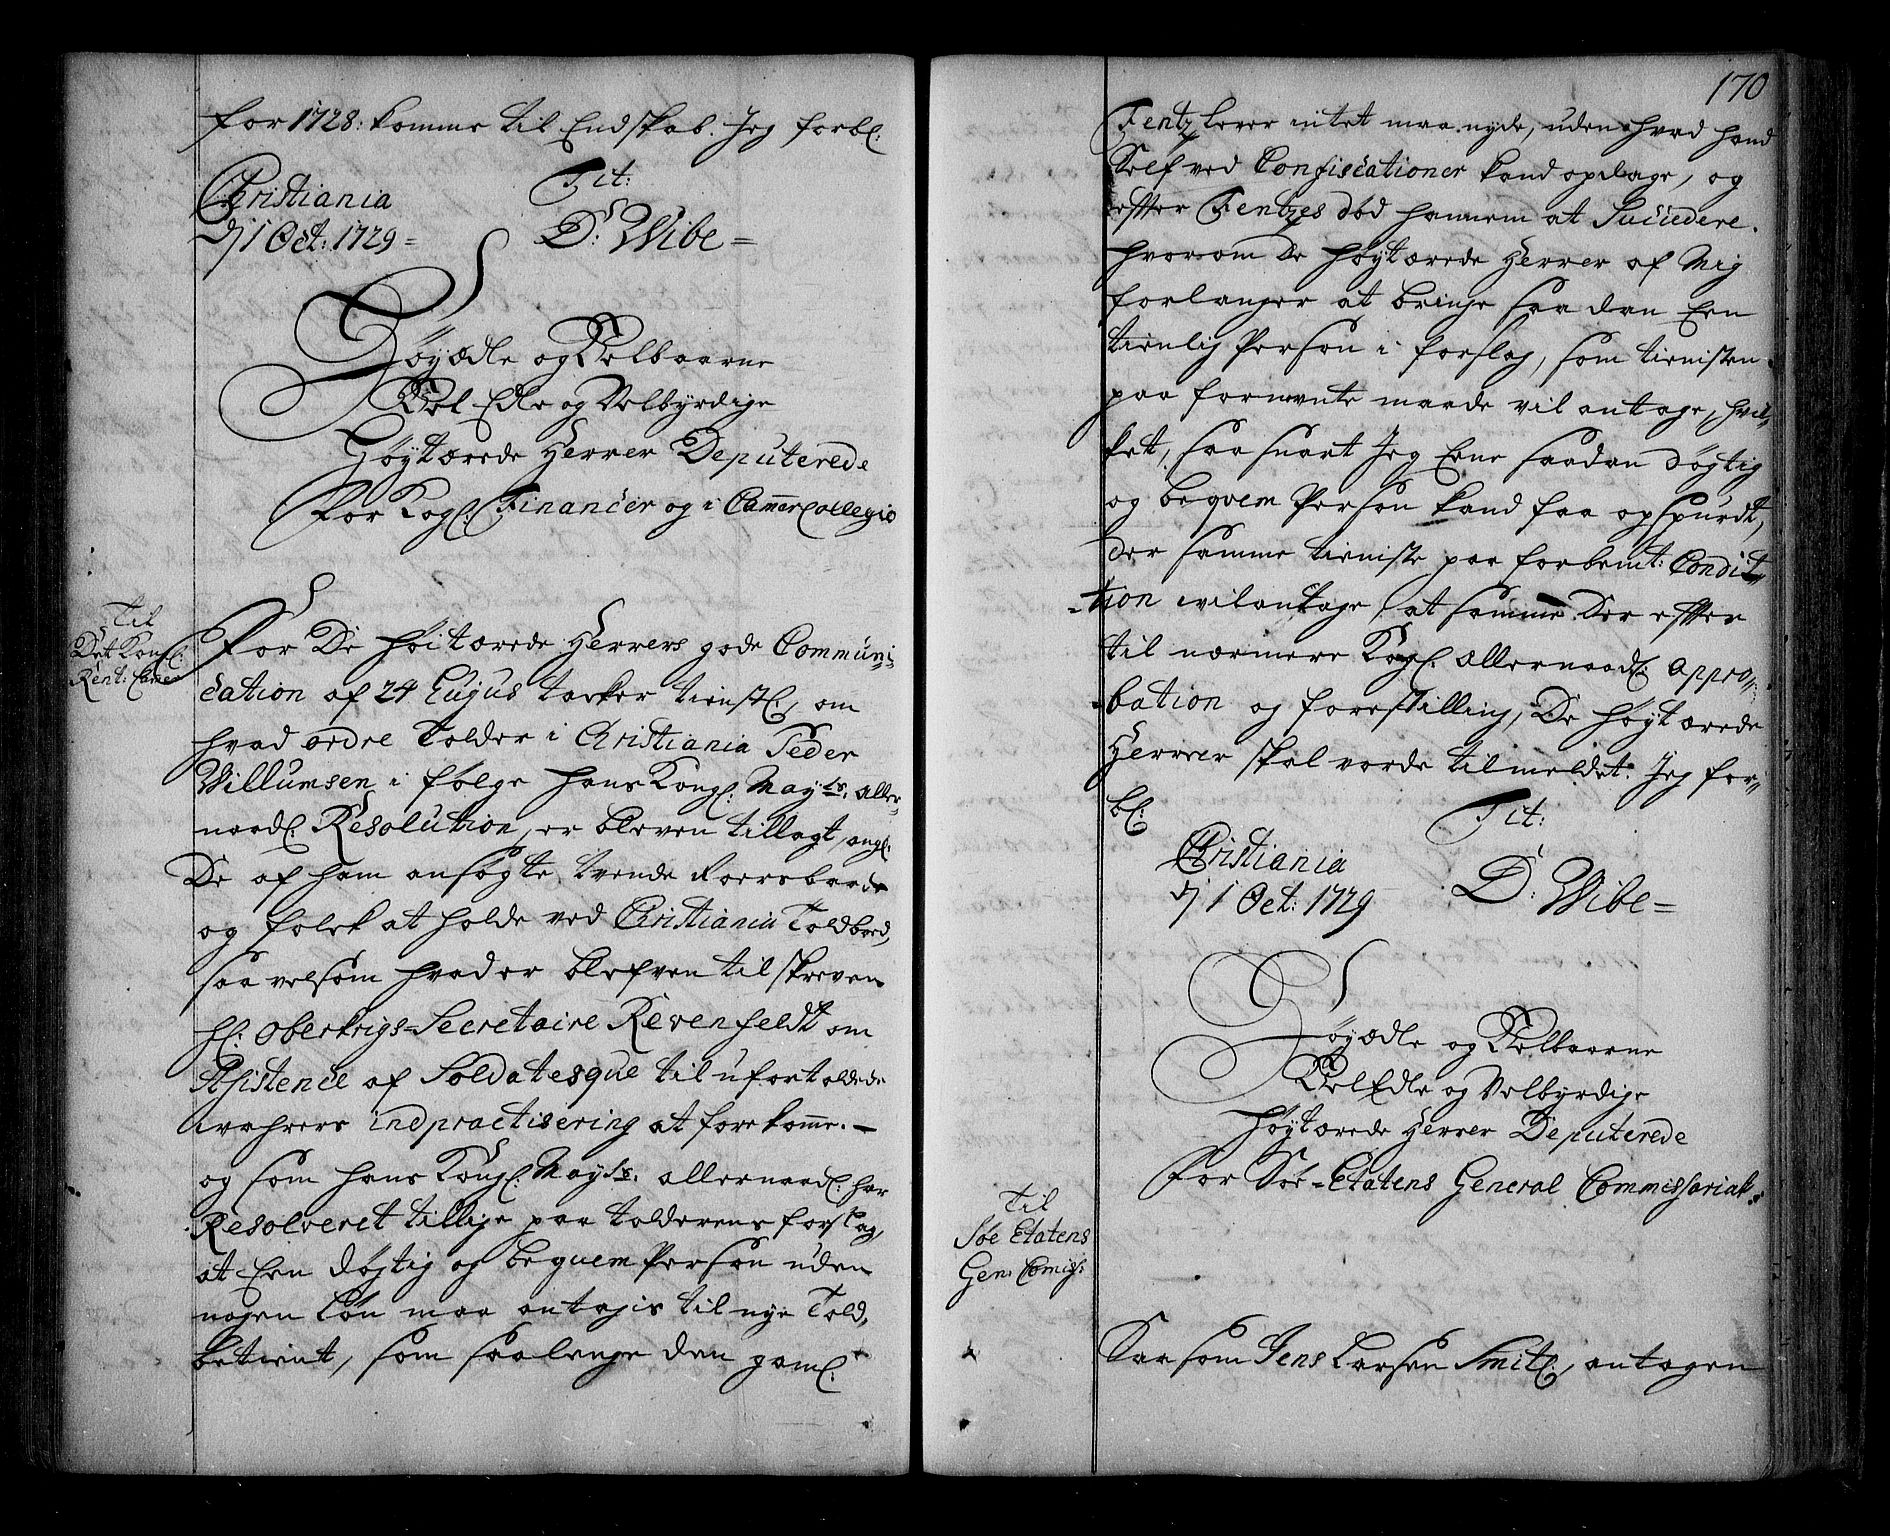 for 1728: komme til Endskab. Jeg forbl:
Christiania
d/ 1 Oct: 1729=
Tit:
D: Wibe=
Høyædle og Velbaarne
Vel Edle og Velbyrdige
Høytærede Herrer Deputerede
for Kogl: Financer og i Cammer Collegio
Til
Det Kongl:
Rent: Camer
For De høitærede Herrers gode Communi-
cation af 24 Eujus takker tienstl:, om
hvad ordre Tolder i Christiania Peder
Willumsen i følge hans Kongl: Mayts: aller-
naadl: Resolution, er bleven tillagt, angl:
De af ham ansøgte, tvende Roersbaade
og folck at holde ved Christiania Toldboed,
saa velsom hvad er blefven tilskreven
hl: Oberkrigs-Secretaire Revenfeldt om
Assistence af Soldatesque til ufortoldede
wahrers indpractisering at forekomme.—
og som hans Kongl: Mayts: allernaadl: har
Resolveret tillige paa tolderens forslag,
at Een døgtig og beqvem Person uden
nogen løn maa antagis til nye Told,
betient, som saalenge den gaml:
170
Fentz lever intet maa nyde, uden hvad hand
Self ved Confiscationer kand opdage, og
efter Fentzes død hannem at Succedere.
hvorom De høytærede Herrer af Mig
forlanger at bringe saadan Een
tienlig Person i forslag, som tienisten
paa formente maade vil antage, hvil-
ket, saa snart Jeg Eene saadan døgtig
og beqvem Person kand faa opspurdt,
der samme tieniste paa forbemt: Condit-
-tion vil antage, at samme Der effter
til nærmere Kogl: allernaadl: appro-
-bation og forestilling, De høytærede
Herrer skal vorde tilmeldet. Jeg for-
bl:
Tit:
Christiania
d/ 1 Oct: 1729
D: Wibe=
Høyædle og Velbaarne
Vel Edle og Velbyrdige
Høytærede Herrer Deputerede
for Søe-Etatens General Commissariat
Til
Søe Etatens
Gen: Comiss:
Saasom Jens Larsen Smit, antagen